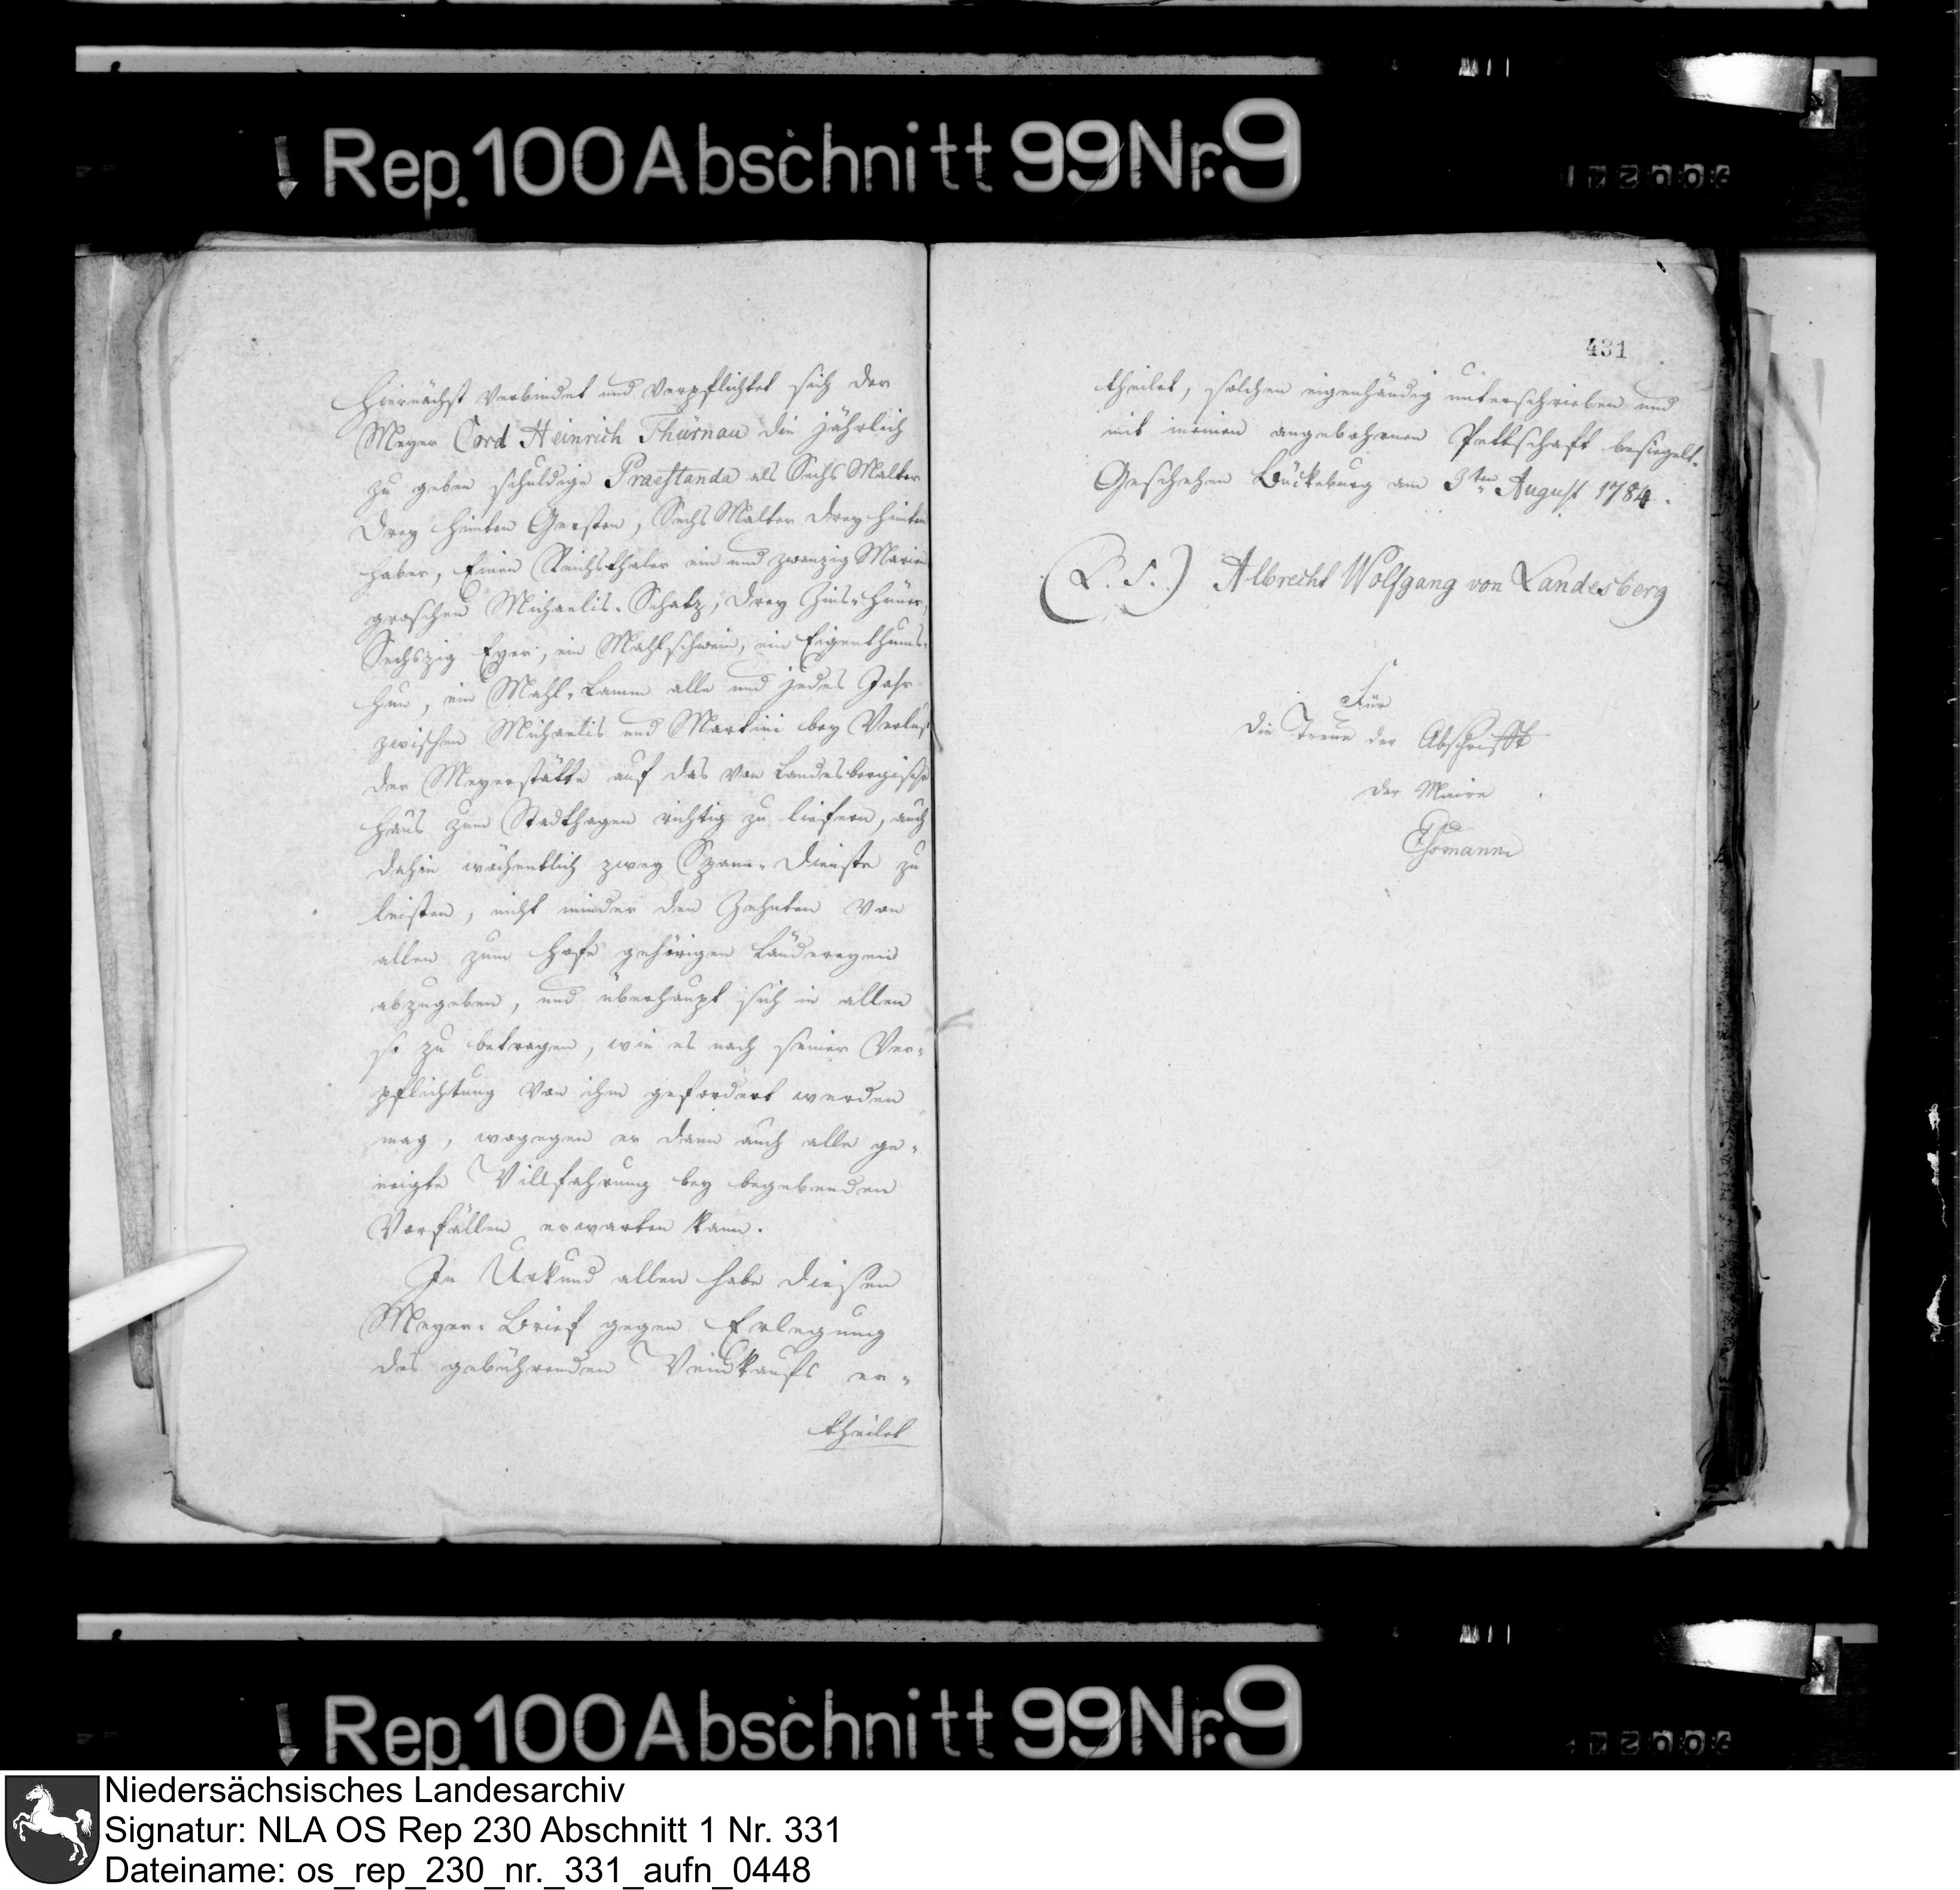 Rep. 100 Abschnitt 99 Nr. 9
Hiernächst verbindet und verpflichtet sich der
Meyer Cord Heinrich Thürnau die jährlich
zu geben schuldige Praestanda als Sechs Malter
drey Himten Gersten, Sechs Malter drey Himten
Haber, Einen Reichsthaler ein und zwanzig Marien
groschen Michaelis-Schatz, drey Zins-Hüner,
Sechszig Eyer, ein Mahlschwein, ein Eigenthums-
Hun, ein Mahl-Lamm alle und jedes Jahr
zwischen Michaelis und Martini bey Verlust
der Meyerstätte auf das von Landesbergische
Haus zum Stadthagen richtig zu liefern, auch
dahin wöchentlich zwey Spann-Dienste zu
leisten, nicht minder den Zehnten von
allen zum Hofe gehörigen Ländereyen
abzugeben, und überhaupt sich in allen
so zu betragen, wie es nach seiner Ver-
pflichtung von ihm gefordert werden
mag, wogegen er dann auch alle ge-
neigte Villfahrung bey begebenden
Vorfällen erwarten kann.
In Urkund allen habe diesen
Meyer-Brief gegen Erlegung
des gebührenden Veindkaufs er-
theilet
431
theilet, solchen eigenhändig unterschrieben und
mit meinen angebohrenen Pettschaft besiegelt.
Geschehen Bückeburg am 3ten August 1784.
(L. S.) Albrecht Wolfgang von Landesberg
Für
die Treue der Abschrifft
der Maire
Rep. 100 Abschnitt 99 Nr. 9
Niedersächsisches Landesarchiv
Signatur: NLA OS Rep 230 Abschnitt 1 Nr. 331
Dateiname: os_rep_230_nr._331_aufn_0448